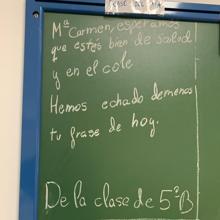 FRASE DEL DÍA
Mª Carmen, esperamos
que estés bien de salud
y en el cole
Hemos echado de menos
tu frase de hoy.
De la clase de 5ºB